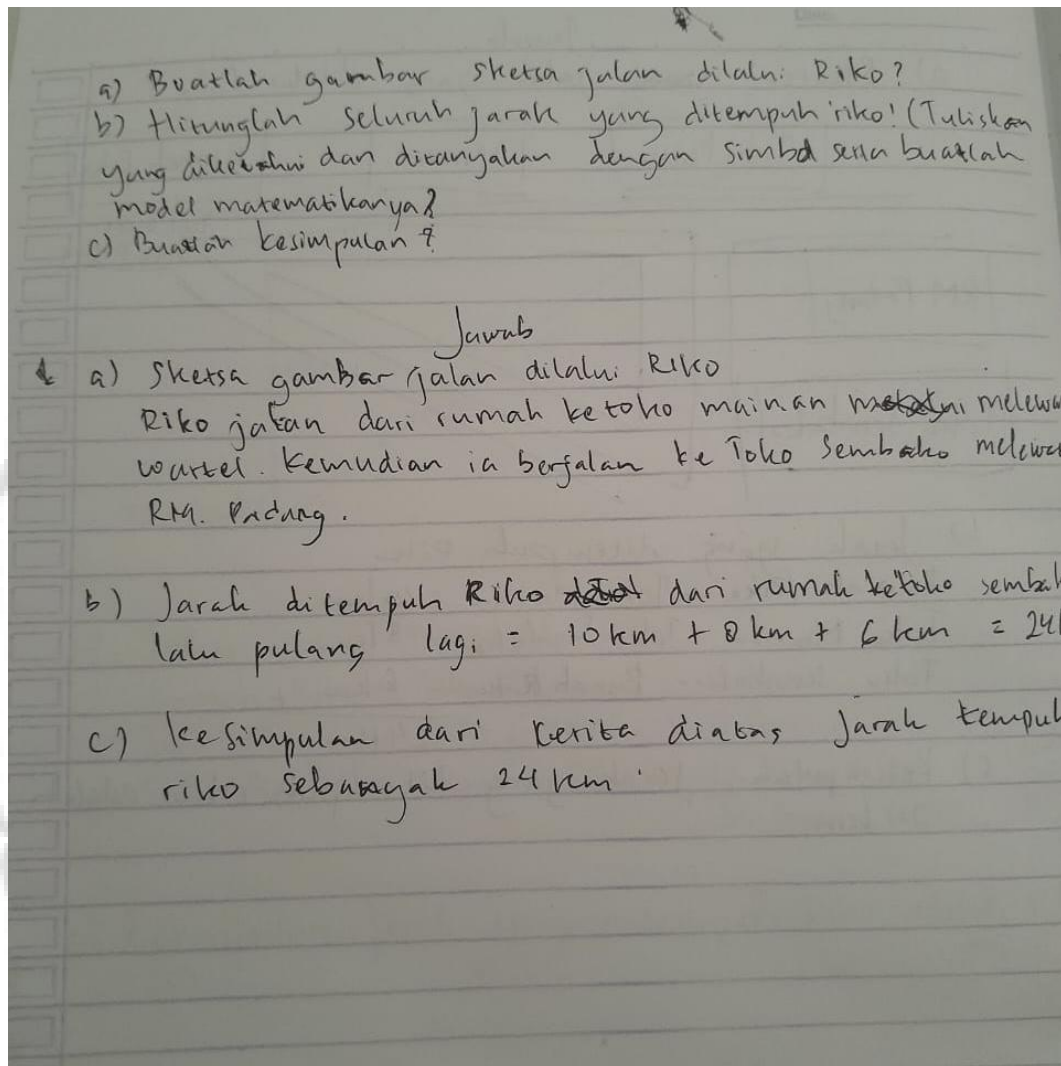 a) Buatlah gambar sketsa jalan dilalui Riko?
b) Hitunglah seluruh jarak yang ditempuh riko! (Tuliskan
yang diketahui dan ditanyakan dengan simbol serta buatlah
model matematikanya?
c) Buatlah kesimpulan?
Jawab
a) Sketsa gambar jalan dilalui RIKO
Riko jalan dari rumah ketoko mainan melewa
wartel. Kemudian ia berjalan ke Toko Sembako melewa
RM. Padang.
b) Jarak ditempuh Riko dari rumah ketoko sembak
lalu pulang lagi = 10 km + 8 km + 6 km = 24
c) kesimpulan dari cerita diatas Jarak tempuh
riko sebanyak 24 km.